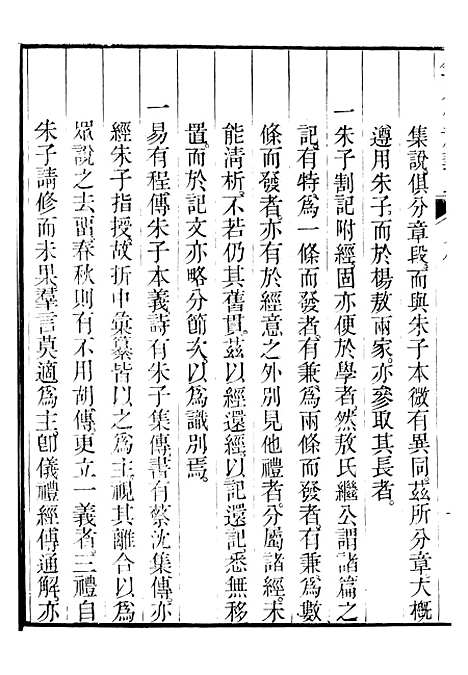 集說俱分章段而與朱子本微有異同茲所分章大概
遵用朱子而於楊敖兩家亦參取其長者
一朱子割記附經固亦便於學者然敖氏繼公謂諸篇之
記有特為一條而發者有兼為兩條而發者有兼為數
條而發者亦有於經意之外別見他禮者分屬諸經未
能淸析不若仍其舊貫茲以經還經以記還記悉無移
置而於記文亦略分節次以為識別焉
一易有程傳朱子本義詩有朱子集傳書有蔡沈集傳亦
經朱子指授故折中彙纂皆以之為主視其離合以為
眾說之去留春秋則有不用胡傳更立一義者三禮自
朱子請修而未果羣言莫適為主卽儀禮經傳通解亦